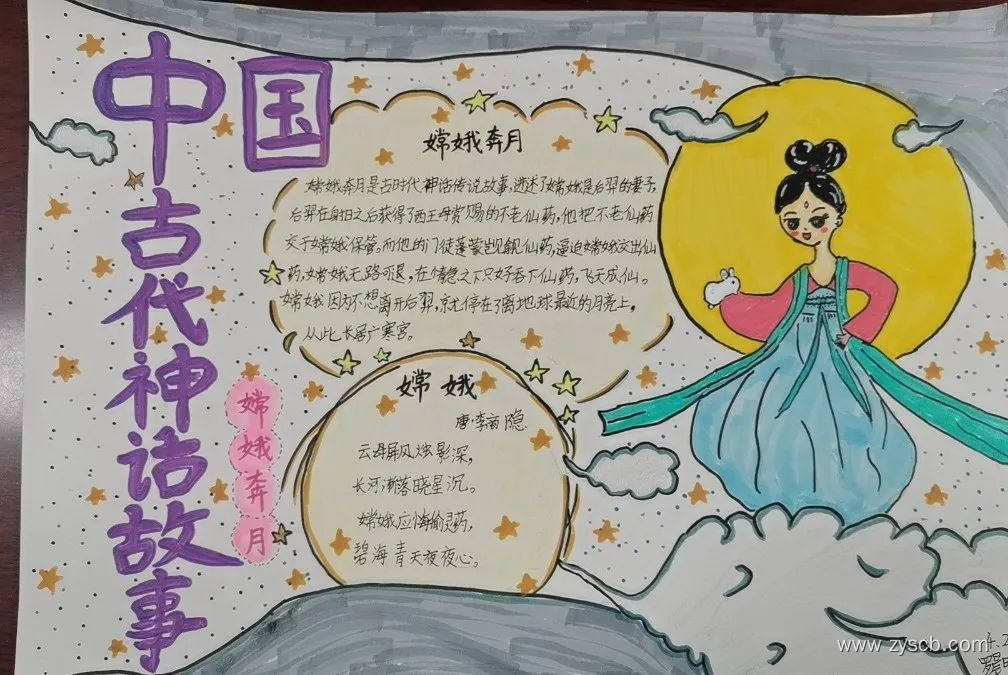 中国古代神话故事
嫦娥奔月
嫦娥奔月
嫦娥奔月是古时代神话传说故事,讲述了嫦娥是后羿的妻子,
后羿在射日之后获得了西王母赏赐的不老仙药,他把不老仙药
交于嫦娥保管,而他的门徒蓬蒙觊觎仙药,逼迫嫦娥交出仙
药,嫦娥无路可退,在情急之下只好吞下仙药,飞天成仙。
嫦娥因为不想离开后羿,就停在了离地球最近的月亮上,
从此长居广寒宫。
嫦娥
唐·李商隐
云母屏风烛影深,
长河渐落晓星沉。
嫦娥应悔偷灵药,
碧海青天夜夜心。
www.zyscb.com